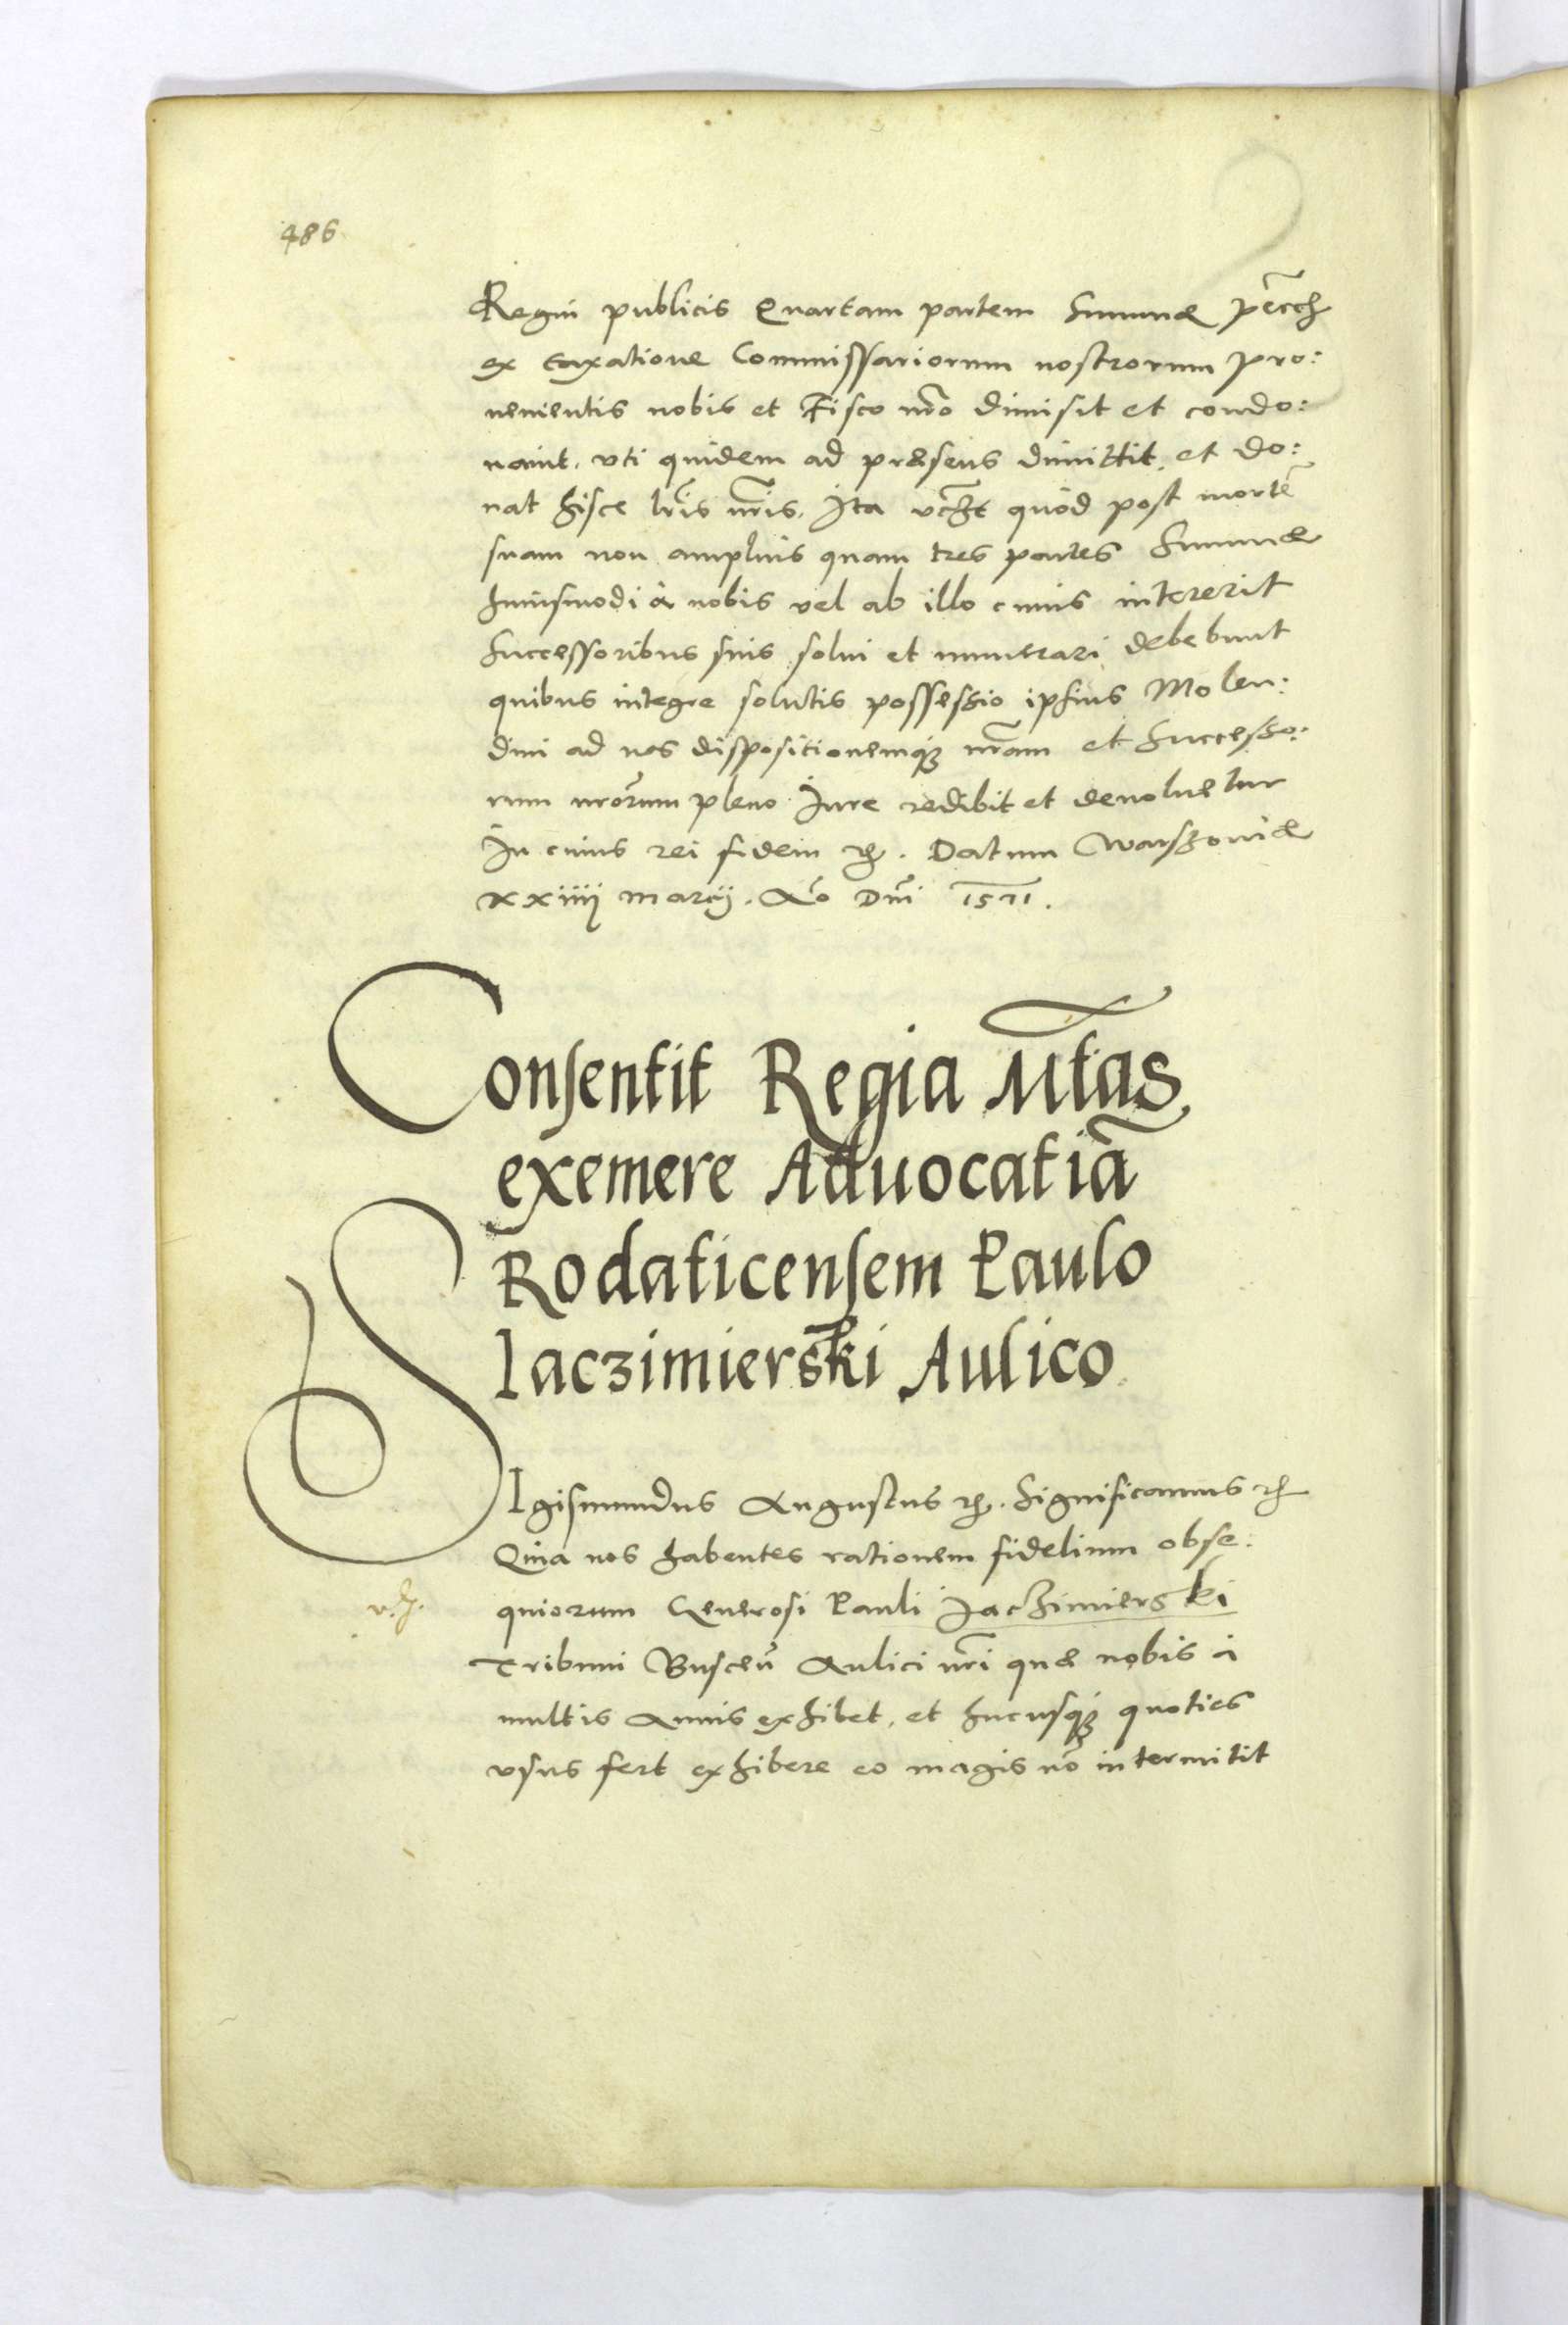 486
Regni publicis Quartam partem Summæ
ex taxatione Commissariorum nostrorum pro:
uenientis nobis et Fisco nro dimisit et condo:
nauit. vti quidem ad præsens dimittit et do:
nat hisce lris nris. Ita quod post morte
suam non amplius quam tres partes Summæ
huiusmodi à nobis vel ab illo cuius intererit
Successoribus suis solui et numerari debebunt
quibus integre solutis possessio ipsius Molen:
dini ad nos dispositionemq3 nram et Successo:
rum nrorum pleno Iure redibit et deuoluetur
In cuius rei fidem etc. Datum Warszouiæ
xxiiij marcij. Ao Dni 1571.
Consentit Regia Mtas
exemere Aduocatiā
Rodaticensem Paulo
Iaczimierski Aulico
SIgismundus Augustus etc. Significamus etc
Quia nos habentes rationem fidelium obse:
quiorum Generosi Pauli Jaczimierski
Tribuni Buscen̄ Aulici nri quæ nobis à
multis Annis exhibet, et hucusq3 quoties
vsus fert exhibere eo magis nō intermitit